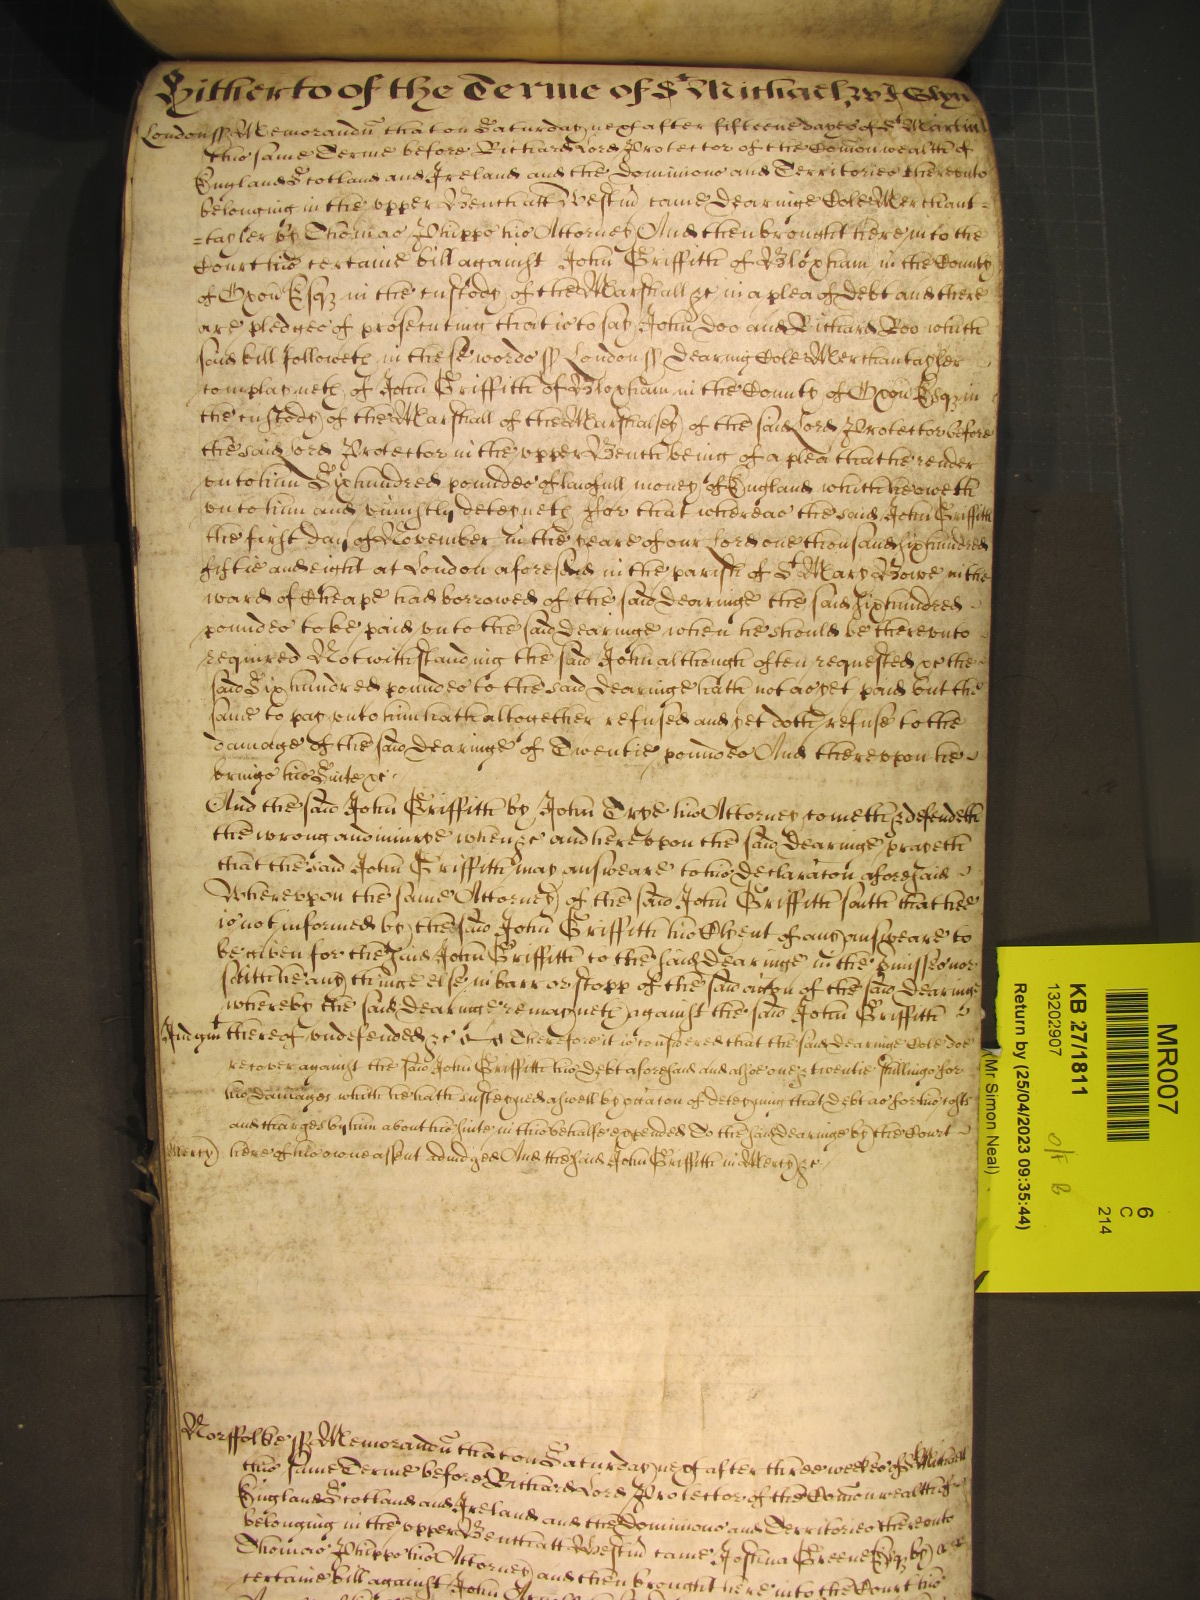 Hitherto of the Terme of St Michael
London ss Memorandū that on Saturday next after fifteene dayes of St Martin
this same Terme before Richard Lord Protector of the Comon wealth of
England Scotland and Ireland and the Dominions and Territories thereunto
belonging in the upper Bench att Westm̄ came Dearinge Cole Merchant=
=tayler by Thomas Phipps his Attorney And then brought here into the
Court his certaine bill against John Griffith of Bloxham in the County
of Oxon Esqr in the custody of the Marshall &c in a plea of debt and there
are pledges of prosecuting that is to say John Doo and Richard Roo which
said bill followeth in these words ss London ss Dearing Cole Merchantayler
complayneth of John Griffith of Bloxham in the County of Oxon Esqr in
the custody of the Marshall of the Marshalsey of the said Lord Protector before
the said Lord Protector in the upper Bench being of a plea that he render
unto him Six hundred poundes of lawfull money of England which he oweth
unto him and uniustly deteyneth For that whereas the said John Griffith
the first day of November in the yeare of our Lord one thousand six hundred
fiftie and eight at London aforesaid in the parish of St Mary Bowe in the
ward of Cheape had borrowed of the said Dearinge the said six hundred
poundes to be paid unto the said Dearinge when he should be thereunto
required Notwithstanding the said John although often requested &c the
said Six hundred poundes to the said Dearinge hath not as yet paid but the
same to pay unto him hath altogether refused and yet doth refuse to the
damage of the said Dearinge of Twentie poundes And thereupon he
brings his Suite &c
And the said John Griffith by John Trye his Attorney cometh & defendeth
the wrong and iniurye when &c and hereupon the said Dearinge prayeth
that the said John Griffith may answeare to his Declaracon aforesaid
Whereupon the same Attorney of the said John Griffith saith that hee
is not informed by the said John Griffith his Clyent of any answeare to
be given for the said John Griffith to the said Dearinge in the pmisses nor
saith he any thinge else in barr or stopp of the said accon of the said Dearinge
whereby the said Dearinge remayneth against the said John Griffith
Judgmt thereof undefended &c Therefore it is considered that the said Dearinge Cole doe
recover against the said John Griffith his Debt aforesaid and alsoe one & twentie shillings for
his damages which he hath susteyned aswell by occacon of deteyning that Debt as for his costs
and charges by him about his suite in this behalfe expended To the said Dearinge by the Court
Mercy here of his owne assent adiudged And the said John Griffith in Mercy &c
MR007
KB 27/1811
13202907
Return by (25/04/2023 09:35:44)
(Mr Simon Neal)
6
C
214
O/F B
Norffolke ss Memorandū that on Saturday next after three weekes of St Michael
this same Terme before Richard Lord Protector of the Comon wealth of
England Scotland and Ireland and the Dominions and Territories thereunto
belonging in the upper Bench att Westm̄ came Joshua Greene Esqr by
Thomas Phipps his Attorney and then brought here into the Court his
certaine bill against John